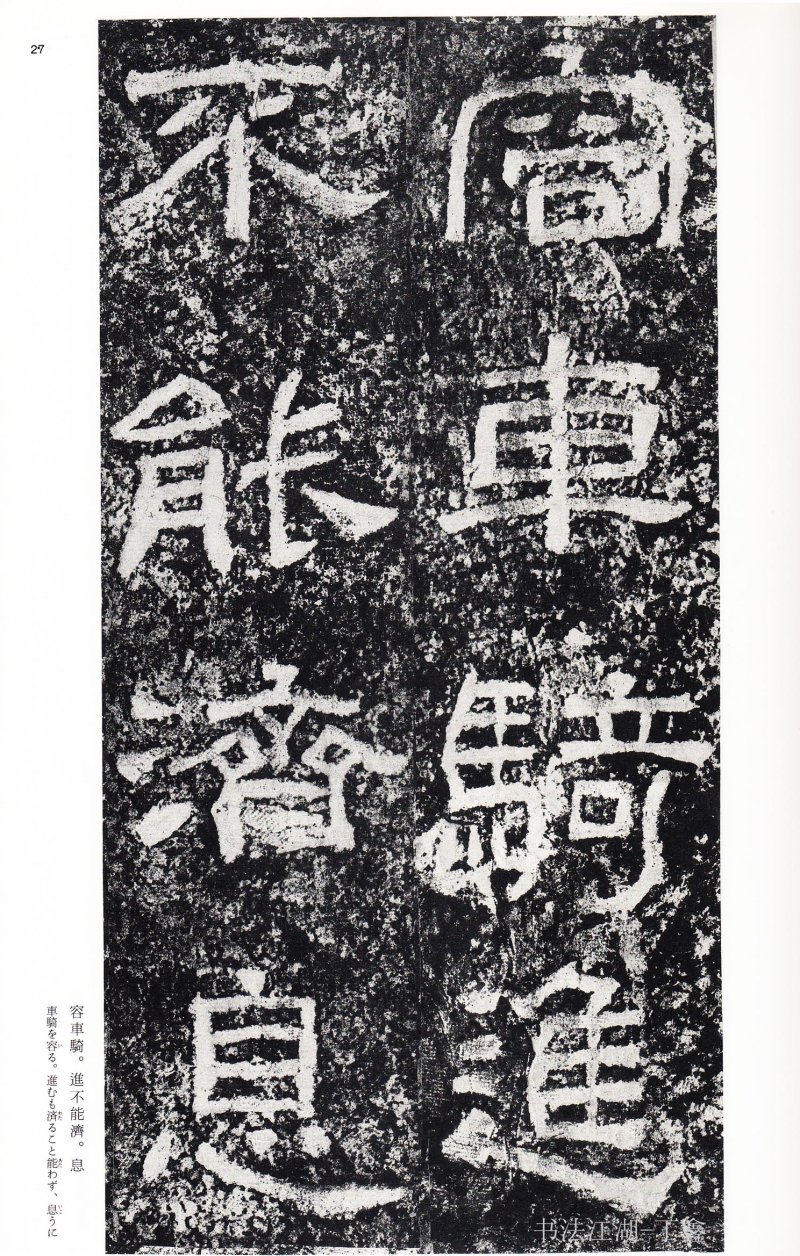 27
容車騎進
不能濟息
容車騎。進不能濟。息
車騎を容る。進むも済ること能わず、息うに
书法江湖